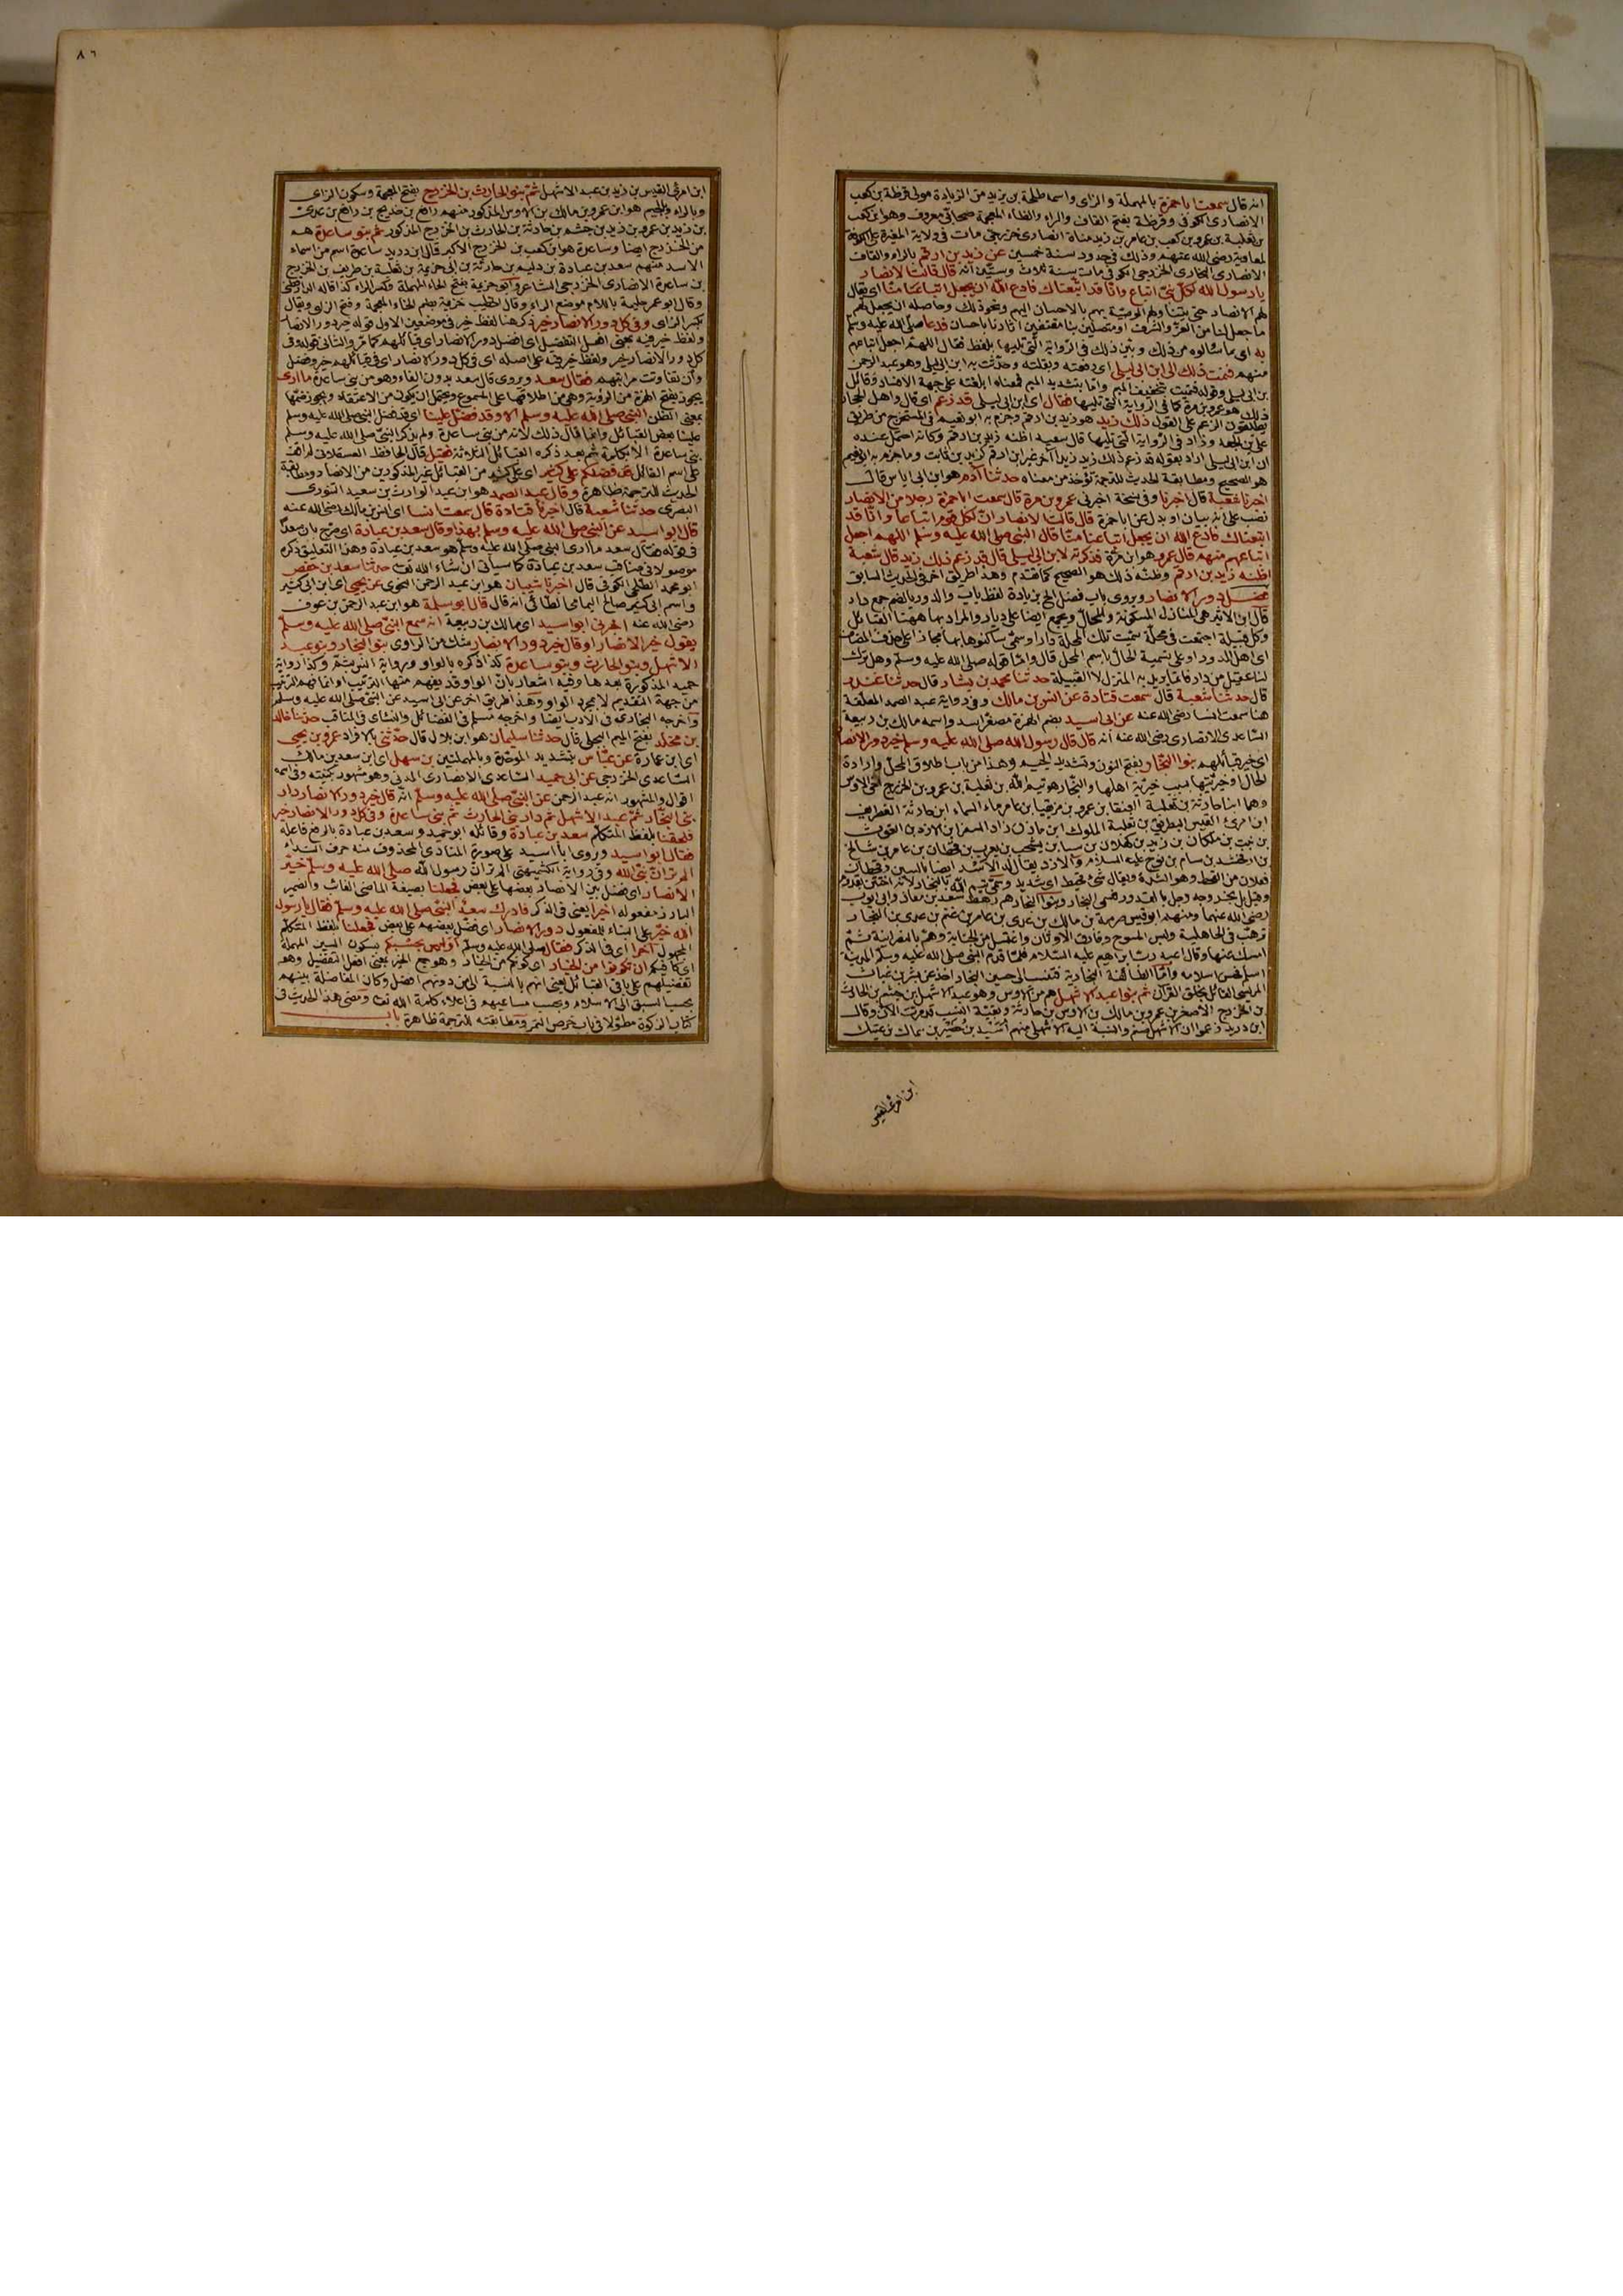 انه قال سمعت ابا حمزة بالمهملة والزاى واسمه طلحة بن يزيد من الزيادة مولى قرظة بن كعب
الانصارى الكوفى وقرظة بفتح القاف والراء والظاء المعجمة صحابى معروف وهو ابن كعب
بن ثعلبة بن عمرو بن كعب بن عامر بن زيد مناة انصارى خزرجى مات فى ولاية المغيرة على الكوفة
لمعاوية رضى الله عنهم وذلك فى حدود سنة خمسين عن زيد بن ارقم بالراء والقاف
الانصارى الخزرجى الكوفى مات سنة ثلاث وستين انه قال قالت الانصار
يا رسول الله لكل نبى اتباع وانا قد اتبعناك فادع الله ان يجعل اتباعنا منا اى يقال
لهم الانصار حتى يتناولهم الوصية بهم بالاحسان اليهم ونحو ذلك وحاصله ان يجعل لهم
ما جعل لنا من العز والشرف او متصلين بنا مقتفين آثارنا باحسان فدعا صلى الله عليه وسلم
به اى بما سألوه من ذلك وبين ذلك فى الرواية التى تليها بلفظ فقال اللهم اجعل اتباعهم
منهم فنميت ذلك الى ابن ابى ليلى اى رفعته ونقلته وحدثت به ابن ابى ليلى وهو عبد الرحمن
بن ابى ليلى وقوله فنميت بتخفيف الميم واما بتشديد الميم فمعناه ابلغته على جهة الافساد وقائل
ذلك هو عمرو بن مرة كما فى الرواية التى تليها فقال اى ابن ابى ليلى قد زعم اى قال واهل الحجاز
يطلقون الزعم على القول ذلك زيد هو زيد بن ارقم وجزم به ابو نعيم فى المستخرج من طريق
على بن الجعد وزاد فى الرواية التى تليها قال شعبة اظنه زيد بن ارقم وكانه احتمل عنده
ان ابن ابى ليلى اراد بقوله قد زعم ذلك زيد زيدا آخر غير ابن ارقم كزيد بن ثابت وما جزم به ابو نعيم
هو الصحيح ومطابقة الحديث للترجمة تؤخذ من معناه حدثنا آدم هو ابن ابى اياس قال
اخبرنا شعبة قال اخبرنا وفى نسخة اخبرنى عمرو بن مرة قال سمعت ابا حمزة رجلا من الانصار
نصب على انه بيان او بدل عن ابا حمزة قال قالت الانصار ان لكل قوم اتباعا وانا قد
اتبعناك فادع الله ان يجعل اتباعنا منا قال النبى صلى الله عليه وسلم اللهم اجعل
اتباعهم منهم قال عمرو هو ابن مرة فذكرته لابن ابى ليلى قال قد زعم ذلك زيد قال شعبة
اظنه زيد بن ارقم وظنه ذلك هو الصحيح كما تقدم وهذا طريق آخر فى الحديث السابق
فضل دور الانصار ويروى باب فضل الخ بزيادة لفظ باب والدور بالضم جمع دار
قال ابن الاثير هى المنازل المسكونة والمحال ويجمع ايضا على ديار والمراد بها ههنا القبائل
وكل قبيلة اجتمعت فى محلة سميت تلك المحلة دارا وسمى ساكنوها بها مجازا على حذف المضاف
اى اهل الدور او على تسمية الحال باسم المحل قال واما قوله صلى الله عليه وسلم وهل ترك
لنا عقيل من دار فانما يريد به المنزل لا القبيلة حدثنا محمد بن بشار قال حدثنا غندر
قال حدثنا شعبة قال سمعت قتادة عن انس بن مالك وفى رواية عبد الصمد المعلقة
هنا سمعت انسا رضى الله عنه عن ابى اسيد بضم الهمزة مصغر اسد واسمه مالك بن ربيعة
الساعدى الانصارى رضى الله عنه انه قال قال رسول الله صلى الله عليه وسلم خير دور الانصار
اى خير قبائلهم بنو النجار بفتح النون وتشديد الجيم وهذا من باب اطلاق المحل وارادة
الحال او خيريتها بسبب خيرية اهلها والنجار هو تيم الله بن ثعلبة بن عمرو بن الخزرج اخى الاوس
وهما ابنا حارثة بن ثعلبة العنقا بن عمرو بن مزيقيا بن عامر ماء السماء ابن حارثة الغطريف
ابن امرئ القيس البطريق بن ثعلبة البهلول ابن مازن زاد السفر ابن الازد بن الغوث
بن نبت بن ملكان بن زيد بن كهلان بن سبا بن يشجب بن يعرب بن قحطان بن عامر بن شالخ
بن ارفخشد بن سام بن نوح عليه السلام والازد يقال له الاسد ايضا بالسين وقحطان
فعلان من القحط وهو الشدة ويقال شئ قحيط اى شديد وسمى تيم الله بالنجار لانه اختتن بقدوم
وقيل بل نجر وجه رجل بالقدوم فسمى النجار وبنو النجار هم رهط سعد بن معاذ وابى ايوب
رضى الله عنهما ومنهم ابو قيس صرمة بن مالك بن عدى بن عامر بن غنم بن عدى بن النجار
ترهب فى الجاهلية ولبس المسوح وفارق الاوثان واغتسل من الجنابة وهم بالنصرانية ثم
امسك عنها وقال اعبد رب ابراهيم عليه السلام فلما قدم النبى صلى الله عليه وسلم المدينة
اسلم فحسن اسلامه واما الطائفة النجارية فتنسب الى حسين النجار اخذ عن بشر بن غياث
المريسى القائل بخلق القرآن ثم بنو عبد الاشهل هم من الاوس وهو عبد الاشهل بن جشم بن الحارث
بن الخزرج الاصغر بن عمرو بن مالك بن الاوس بن حارثة وبقية النسب قد مرت الآن وقال
ابن دريد زعموا ان الاشهل صنم والنسبة اليه الاشهلى منهم اسيد بن حضير بن سماك بن عتيك
ابن امرئ القيس
٨٦
ابن امرئ القيس بن زيد بن عبد الاشهل ثم بنو الحارث بن الخزرج بفتح المعجمة وسكون الزاى
وبالراء وبالجيم هو ابن عمرو بن مالك بن الاوس المذكور منهم رافع بن خديج بن رافع بن عدى
بن زيد بن عمرو بن زيد بن جشم بن حارثة بن الحارث بن الخزرج المذكور ثم بنو ساعدة هم
من الخزرج ايضا وساعدة هو ابن كعب بن الخزرج الاكبر قال ابن دريد ساعدة اسم من اسماء
الاسد منهم سعد بن عبادة بن دليم بن حارثة بن ابى حزيمة بن ثعلبة بن طريف بن الخزرج
بن ساعدة الانصارى الخزرجى الشاعر وابو حزيمة بفتح الحاء المهملة وكسر الزاء كذا قاله الدارقطنى
وقال ابو عمر حليمة باللام موضع الراء وقال الخطيب خزيمة بضم الخاء المعجمة وفتح الزاى ويقال
بكسر الزاى وفى كل دور الانصار خير ذكر هنا لفظ خير فى موضعين الاول قوله خير دور الانصار
ولفظ خير فيه بمعنى افعل التفضيل اى افضل دور الانصار اى قبائلهم كما مر والثانى قوله وفى
كل دور الانصار خير ولفظ خير فيه على اصله اى فى كل دور الانصار اى فى قبائلهم خير وفضل
وان تفاوتت مراتبهم فقال سعد ويروى قال سعد بدون الفاء وهو من بنى ساعدة ما ارى
يجوز بفتح الهمزة من الرؤية وهى من اطلاقها على المسموع ويحتمل ان يكون من الاعتقاد ويجوز ضمها
بمعنى الظن النبى صلى الله عليه وسلم الا وقد فضل علينا اى قد فضل النبى صلى الله عليه وسلم
علينا بعض القبائل وانما قال ذلك لانه من بنى ساعدة ولم يذكر النبى صلى الله عليه وسلم
بنى ساعدة الا بكلمة ثم بعد ذكره القبائل الثلاثة فقيل قال الحافظ العسقلانى لم اقف
على اسم القائل قد فضلكم على كثير اى على كثير من القبائل غير المذكورين من الانصار ومطابقة
الحديث للترجمة ظاهرة وقال عبد الصمد هو ابن عبد الوارث بن سعيد التنورى
البصرى حدثنا شعبة قال اخبرنا قتادة قال سمعت انسا اى انس بن مالك رضى الله عنه
قال ابو اسيد عن النبى صلى الله عليه وسلم بهذا وقال سعد بن عبادة اى صرح بان سعدا
فى قوله فقال سعد ما ارى النبى صلى الله عليه وسلم هو سعد بن عبادة وهذا التعليق ذكره
موصولا فى مناقب سعد بن عبادة كما سياتى ان شاء الله تعالى حدثنا سعد بن حفص
ابو محمد الطلحى الكوفى قال اخبرنا شيبان هو ابن عبد الرحمن النحوى عن يحيى اى ابن ابى كثير
واسم ابى كثير صالح اليمامى الطائى انه قال قال ابو سلمة هو ابن عبد الرحمن بن عوف
رضى الله عنه اخبرنى ابو اسيد اى مالك بن ربيعة انه سمع النبى صلى الله عليه وسلم
يقول خير الانصار او قال خير دور الانصار شك من الراوى بنو النجار وبنو عبد
الاشهل وبنو الحارث وبنو ساعدة كذا ذكره بالواو ورواية انس بثم وكذا رواية
حميد المذكورة بعدها وفيه اشعار بان الواو قد يفهم منها الترتيب او انما فهم الترتيب
من جهة التقديم لا بمجرد الواو وهذا طريق آخر عن ابى اسيد عن النبى صلى الله عليه وسلم
واخرجه البخارى فى الادب ايضا واخرجه مسلم فى الفضائل والنسائى فى المناقب حدثنا خالد
بن مخلد بفتح الميم البجلى قال حدثنا سليمان هو ابن بلال قال حدثنى بالافراد عمرو بن يحيى
اى ابن عمارة عن عباس بتشديد الموحدة وبالمهملتين بن سهل اى ابن سعد بن مالك
الساعدى الخزرجى عن ابى حميد الساعدى الانصارى المدنى وهو مشهور بكنيته وفى اسمه
اقوال والمشهور انه عبد الرحمن عن النبى صلى الله عليه وسلم انه قال خير دور الانصار دار
بنى النجار ثم عبد الاشهل ثم دار بنى الحارث ثم بنى ساعدة وفى كل دور الانصار خير
فلحقنا بلفظ المتكلم سعد بن عبادة وقائله ابو حميد وسعد بن عبادة بالرفع فاعله
فقال ابو اسيد ويروى ابا اسيد على صورة المنادى المحذوف منه حرف النداء
الم تر ان نبى الله وفى رواية الكشميهنى الم تر ان رسول الله صلى الله عليه وسلم خير
الانصار اى فضل بين الانصار بعضها على بعض فجعلنا بصيغة الماضى الغائب والضمير
البارز مفعوله اخيرا يعنى فى الذكر فادرك سعد النبى صلى الله عليه وسلم فقال يا رسول
الله خير على البناء للمفعول دور الانصار اى فضل بعضهم على بعض فجعلنا بلفظ المتكلم
المجهول آخرا اى فى الذكر فقال صلى الله عليه وسلم اوليس بحسبكم بسكون السين المهملة
اى كافيكم ان تكونوا من الخيار اى كونكم من الخيار وهو جمع الخير بمعنى افعل التفضيل وهو
تفضيلهم على باقى القبائل يعنى انهم بالنسبة الى من دونهم افضل وكان المفاضلة بينهم
بحسب السبق الى الاسلام وبحسب مساعيهم فى اعلاء كلمة الله تعالى ومضى هذا الحديث فى
كتاب الزكوة مطولا فى باب خرص التمر ومطابقته للترجمة ظاهرة باب